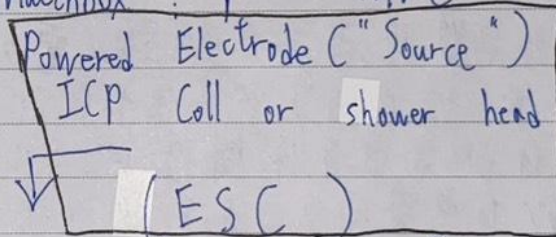 Powered Electrode ("Source")
ICP Coll or shower head
(ESC)